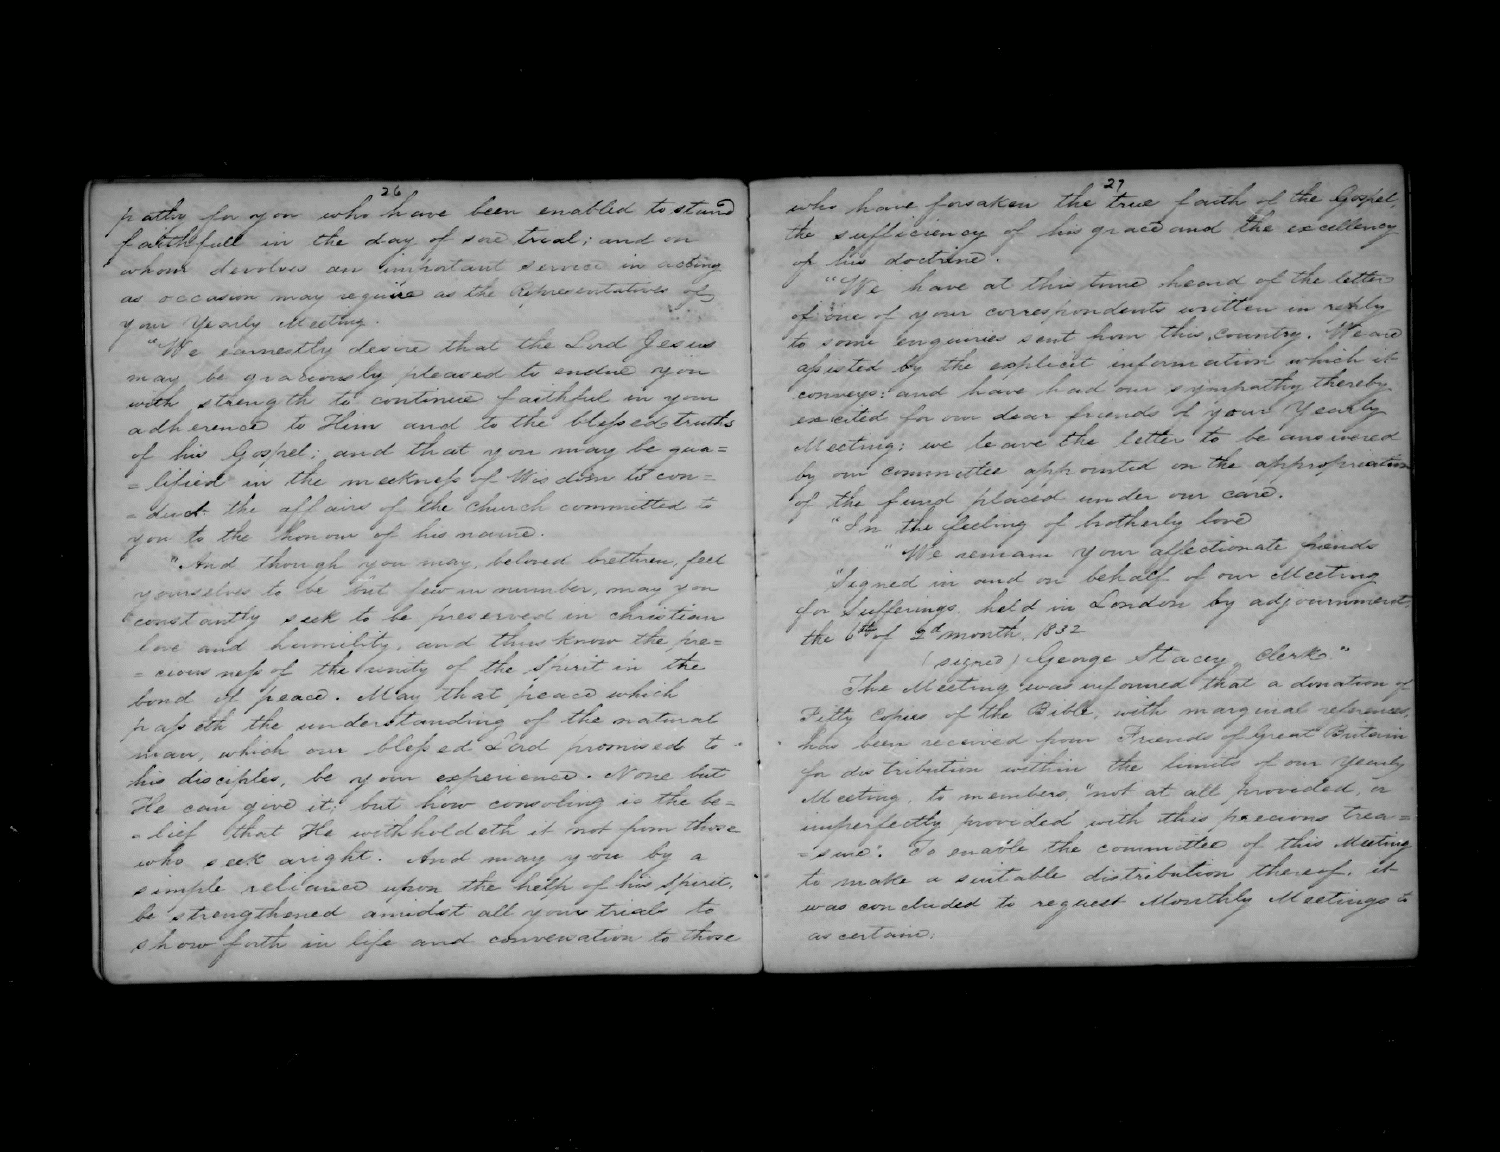 26
pathy for you who have been enabled to stand
faithfull in the day of sore trial; and on
whom devolves an important service in acting
as occasion may require as the Representatives of
your Yearly Meeting.
"We earnestly desire that the Lord Jesus
may be graciously pleased to endue you
with strength to continue faithful in your
adherence to Him and to the blessed truths
of his Gospel; and that you may be qua=
=lified in the meekness of Wisdom to con=
=duct the affairs of the church committed to
you to the honour of his name.
"And though you may, beloved brethren, feel
yourselves to be but few in number, may you
constantly seek to be preserved in christian
love and humility, and thus know the pre=
=ciousness of the unity of the Spirit in the
bond of peace. May that peace which
passeth the understanding of the natural
man, which our blessed Lord promised to
his disciples, be your experience. None but
He can give it; but how consoling is the be=
=lief that He withholdeth it not from those
who seek aright. And may you by a
simple reliance upon the help of his Spirit,
be strengthened amidst all your trials to
show forth in life and conversation to those
27
who have forsaken the true faith of the Gospel,
the sufficiency of his grace and the excellency
of his doctrine.
"We have at this time heard of the letter
of one of your correspondents written in reply
to some enquiries sent from this country. We are
assisted by the explicit information which it
conveys: and have had our sympathy thereby
excited for our dear friends of your Yearly
Meeting; we leave the letter to be answered
by our committee appointed on the appropriation
of the fund placed under our care.
"In the feeling of brotherly love
"We remain your affectionate friends
"Signed in and on behalf of our Meeting
for Sufferings, held in London by adjournment,
the 6th of 2d month, 1832
(signed) George Stacey, Clerk."
The Meeting was informed that a donation of
Fifty Copies of the Bible, with marginal references,
has been received from Friends of Great Britain
for distribution within the limits of our Yearly
Meeting, to members, "not at all provided, or
imperfectly provided with this precious trea=
=sure". To enable the committee of this Meeting
to make a suitable distribution thereof, it
was concluded to request Monthly Meetings to
ascertain;